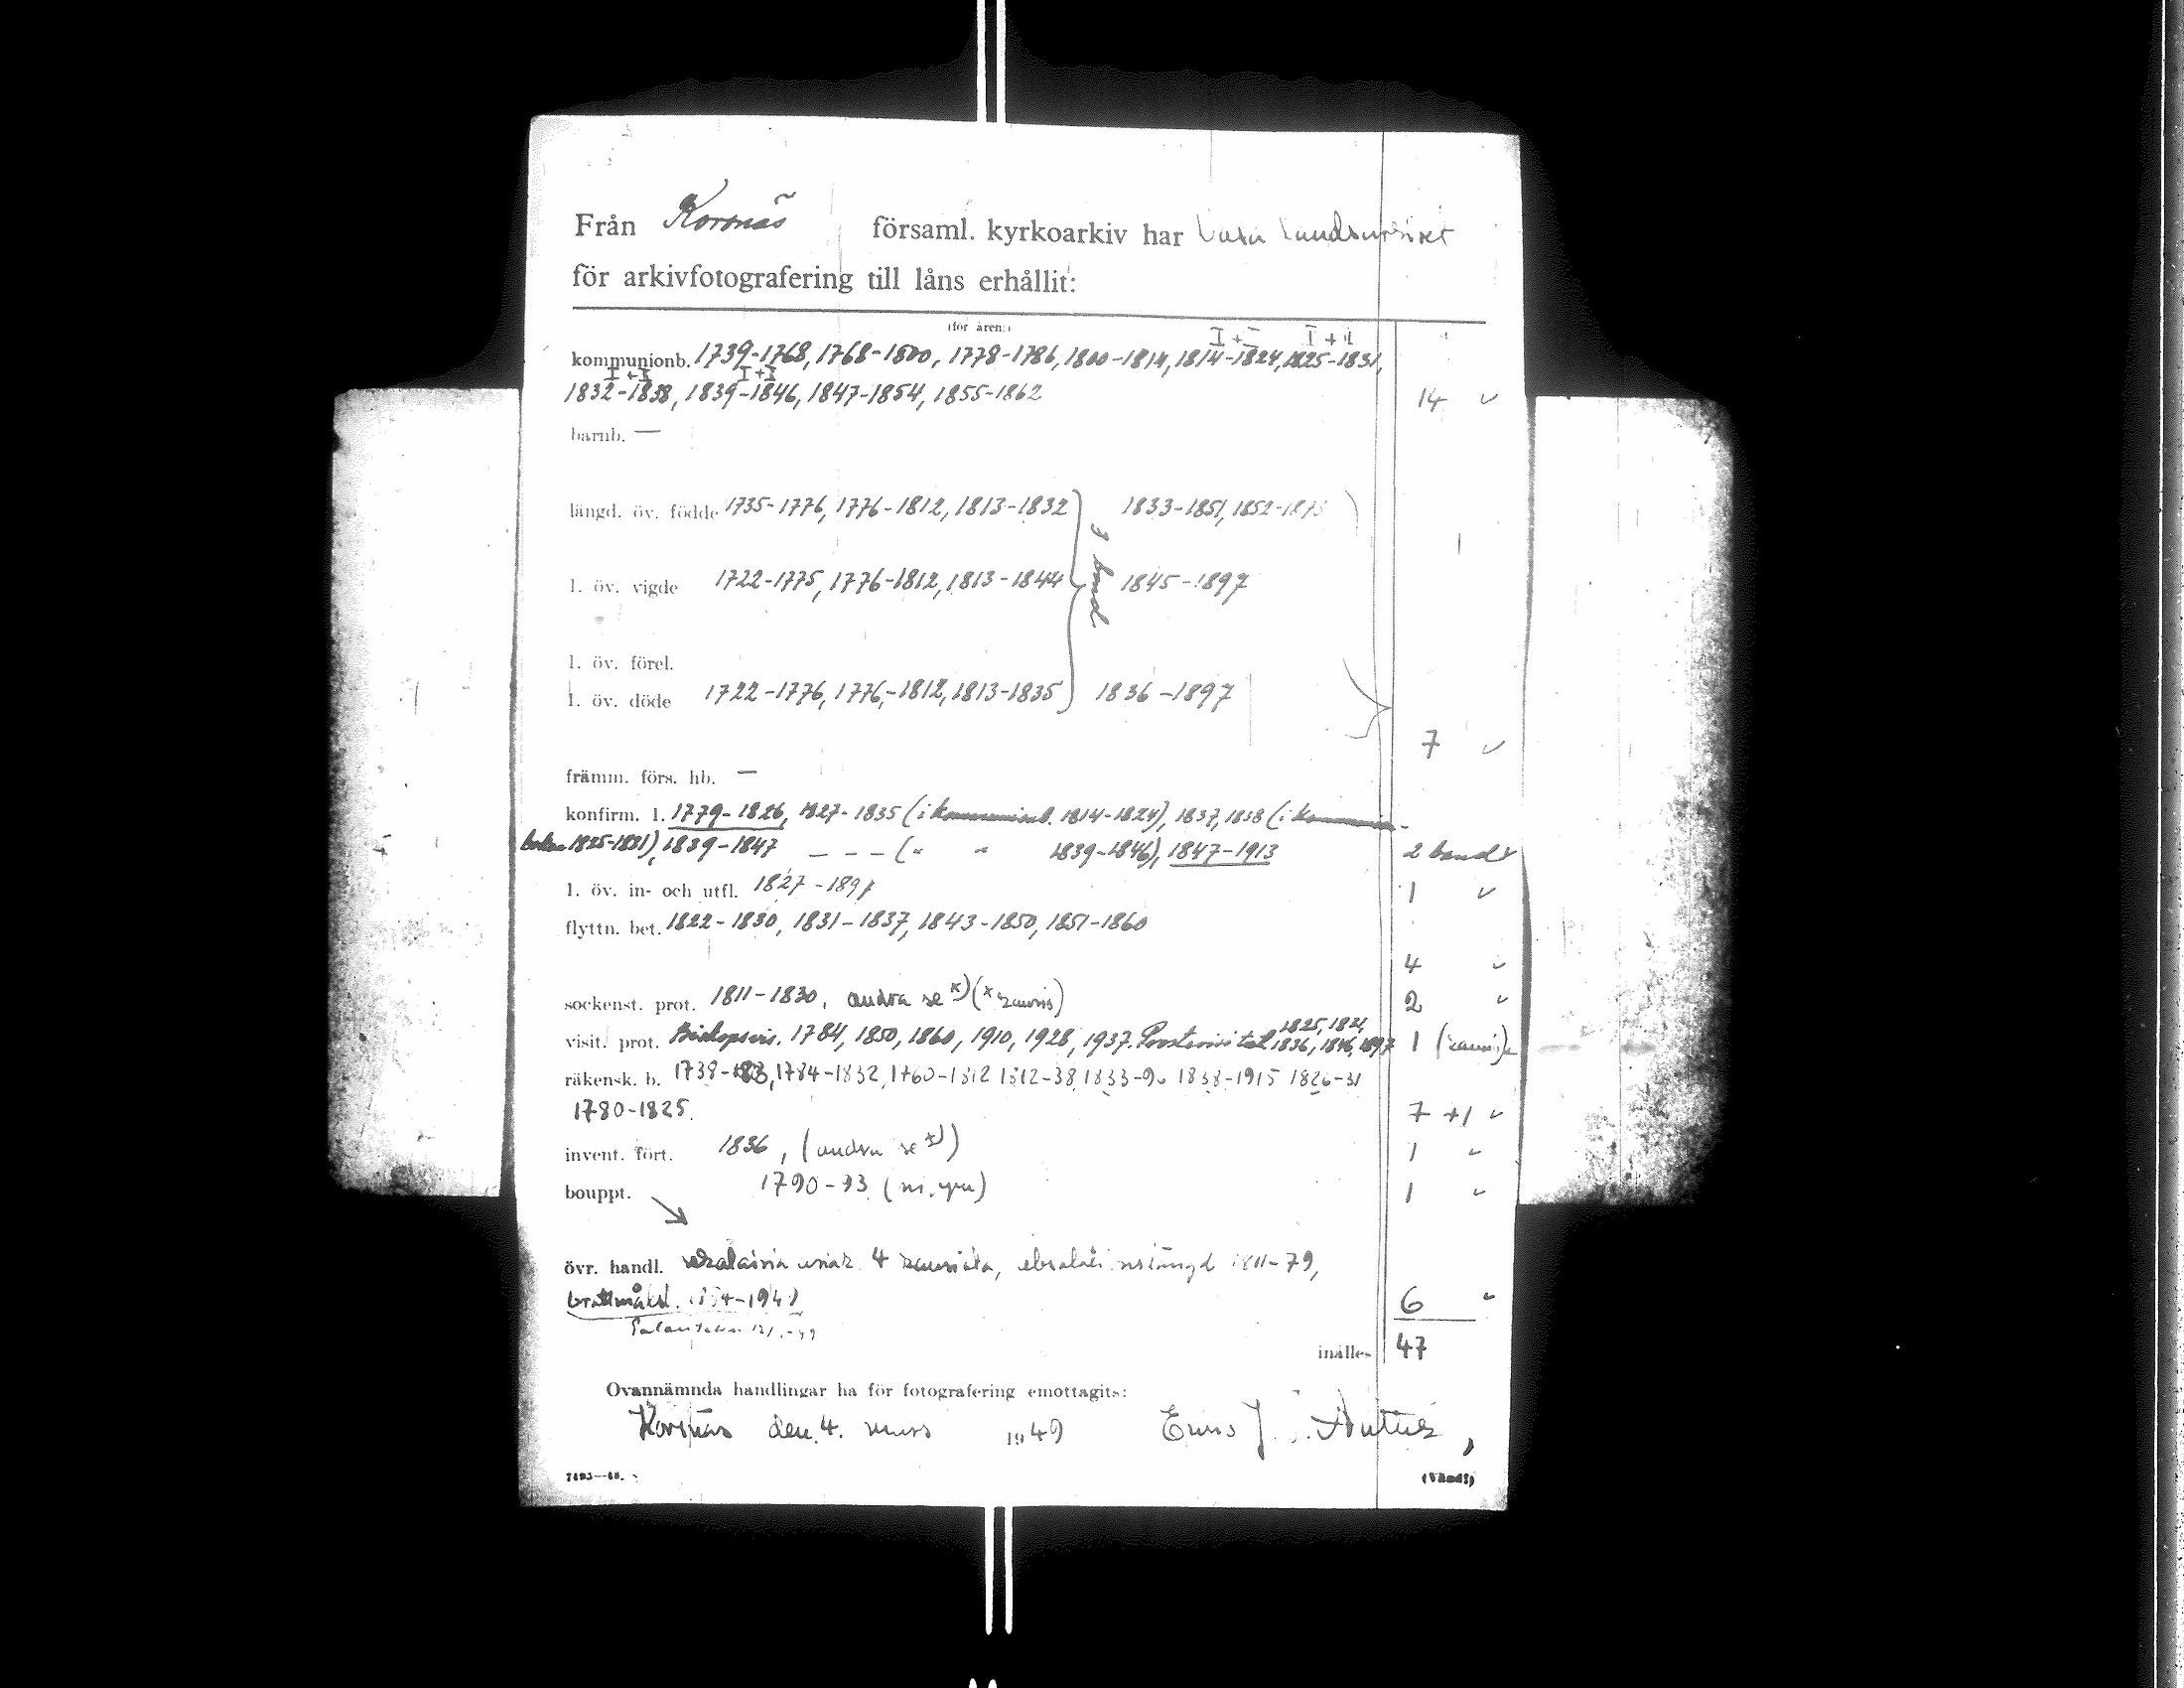 Från Korsnäs församl. kyrkoarkiv har Vasa landsarkivet
för arkivfotografering till låns erhållit:
(för åren:)
I + I I + II
kommunionb. 1739-1768, 1768-1800, 1778-1786, 1800-1814, 1814-1824, 1825-1831,
I + I I + I
1832-1838, 1839-1846, 1847-1854, 1855-1862 14 ✓
barnb. —
längd. öv. födde 1735-1776, 1776-1812, 1813-1832 1833-1851, 1852-1875
3 band
l. öv. vigde 1722-1775, 1776-1812, 1813-1844 1845-1897
l. öv. förel.
l. öv. döde 1722-1776, 1776-1812, 1813-1835 1836-1897
7 ✓
främm. förs. hb. —
konfirm. l. 1779-1826, 1827-1835 (i kommunionb. 1814-1824), 1837, 1838 (i kommunion-
boken 1825-1831), 1839-1847 — — — (" " 1839-1846), 1847-1913 2 band ✓
l. öv. in- och utfl. 1827-1897 1 ✓
flyttn. bet. 1822-1830, 1831-1837, 1843-1850, 1851-1860
4 ✓
sockenst. prot. 1811-1830, andra se x) 2 ✓
1825, 1821,
visit. prot. Biskopsvis. 1784, 1850, 1860, 1910, 1928, 1937. 1836, 1846, 1897 1
räkensk. b. 1738-83, 1784-1832, 1760-1812 1812-38, 1833-90 1838-1915 1826-31
1780-1825. 7 +1 ✓
invent. fört. 1836, (andra se x)) 1 ✓
bouppt. 1790-93 1 ✓
övr. handl. 4 1811-79,
6 ✓
inalles 47
Ovannämnda handlingar ha för fotografering emottagits:
Korsnäs den 4. mars 1949
7493—48. (Vänd!)